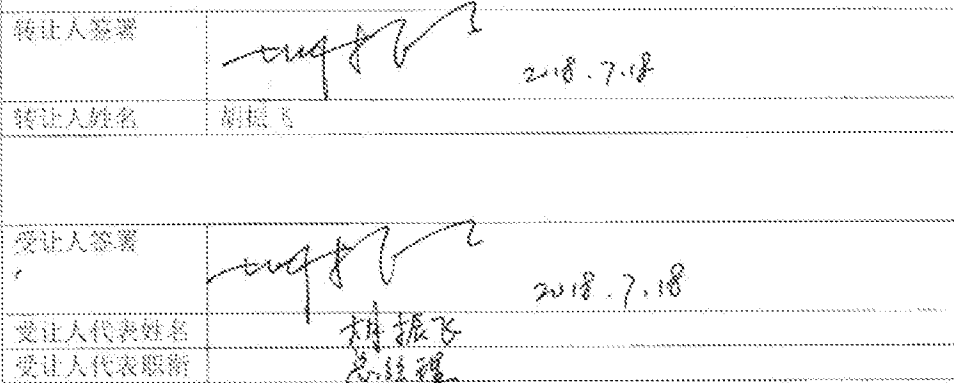 转让人签署
2018.7.18
转让人姓名 胡振飞
受让人签署
2018.7.18
受让人代表姓名 胡振飞
受让人代表职衔 总经理